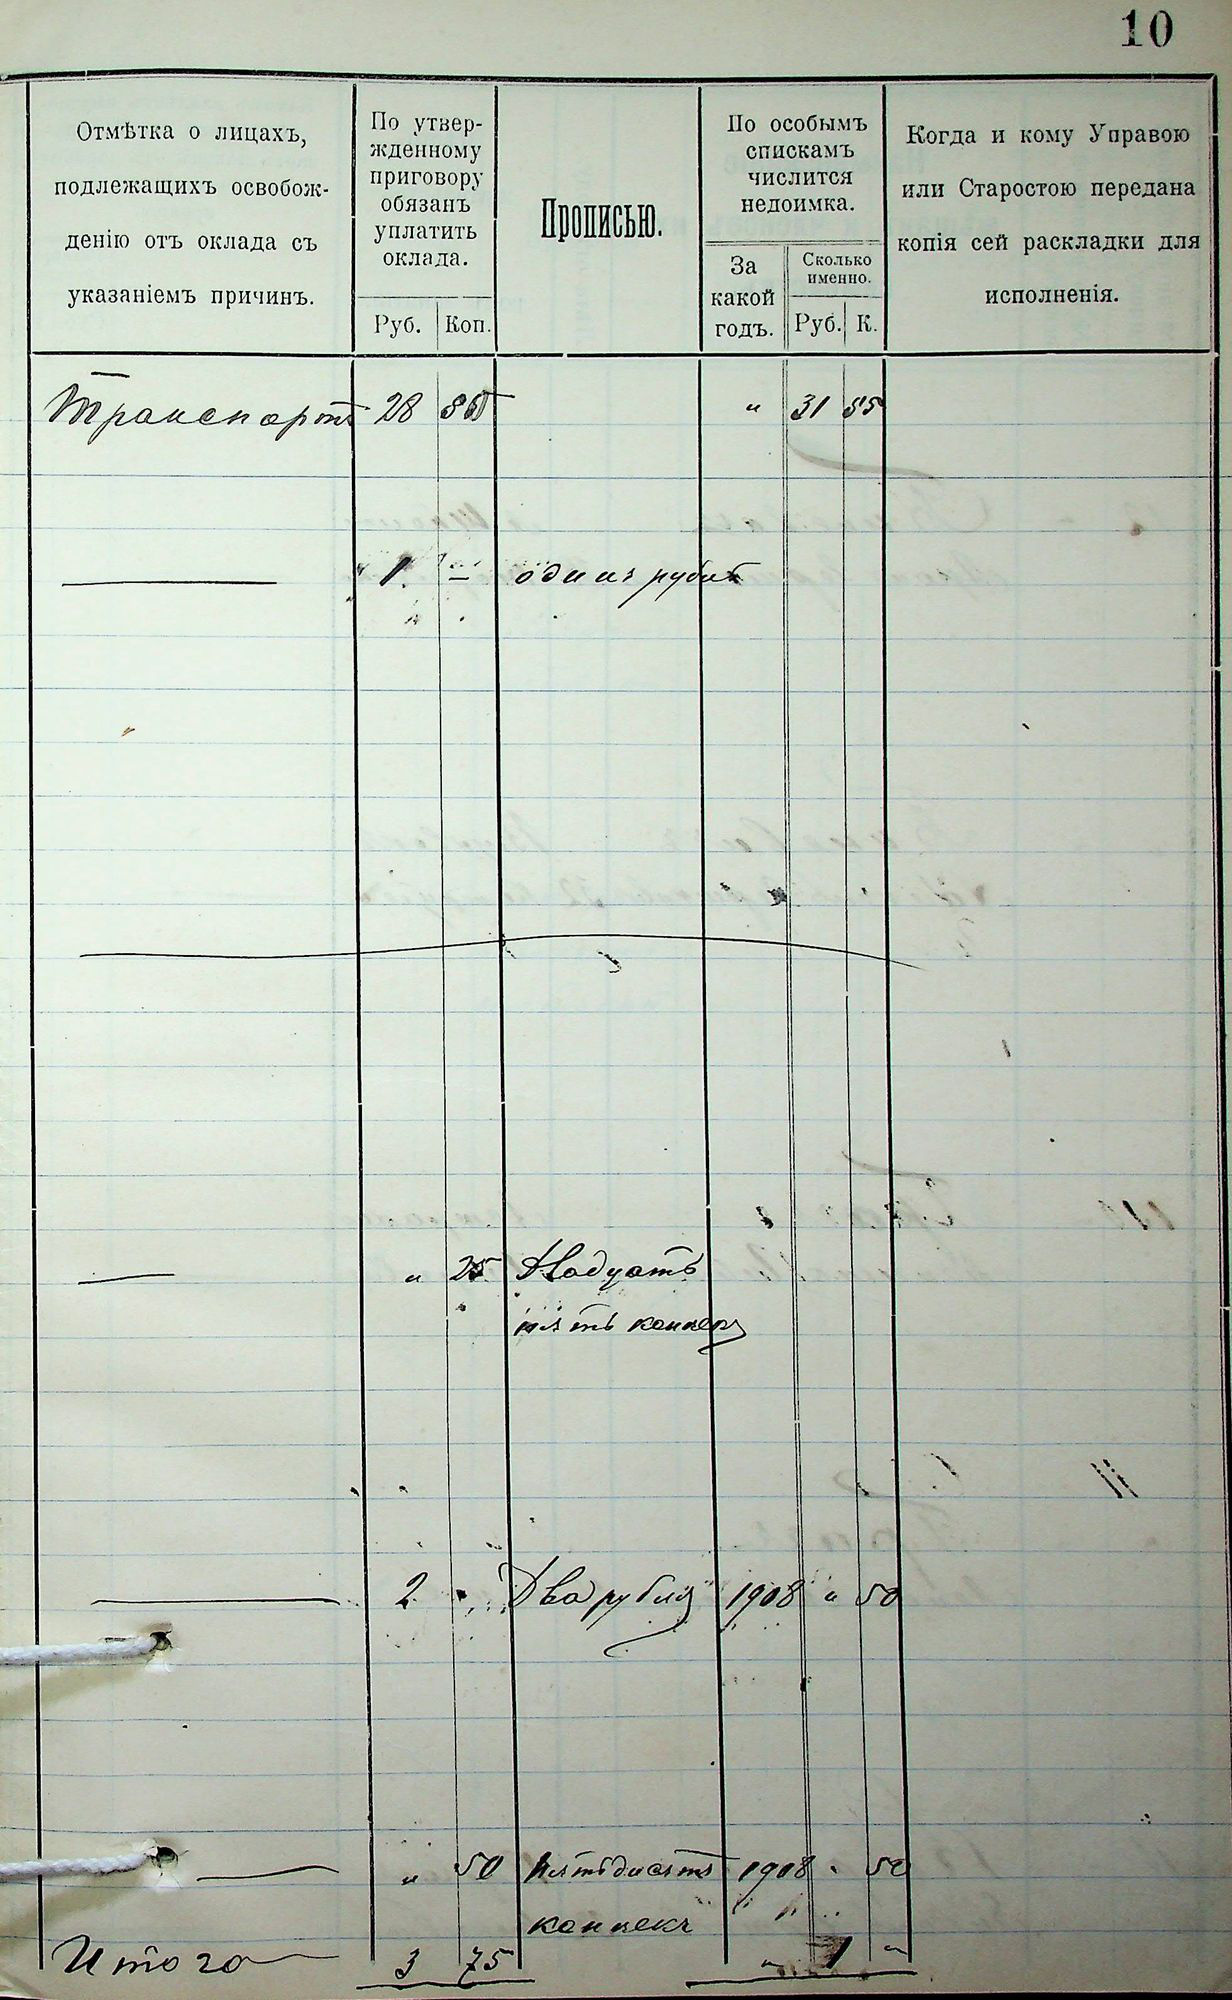 10
Отмѣтка о лицахъ,
подлежащихъ освобож-
денію отъ оклада съ
указаніемъ причинъ.
По утвер-
жденному
приговору
обязанъ
уплатить
оклада.
Руб. Коп.
Прописью.
По особымъ
спискамъ
числится
недоимка.
За
какой
годъ.
Сколько
именно.
Руб. К.
Когда и кому Управою
или Старостою передана
копія сей раскладки для
исполненія.
Транспортъ 28 " 31 55
1 — одинъ рубль
" 25 Двадцать
пять копеекъ
2 " Два рубля 1908 " 50
" 50 пятьдесятъ 1908 " 50
копеекъ
Итого 3 75 " 1 "